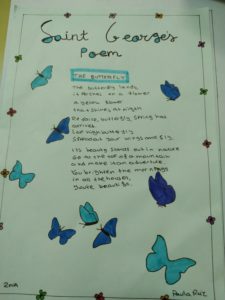 Saint Georges
Poem
THE BUTTERFLY
The butterfly lands
it perches on a flower
a yellow flower
that shines at night
Rejoice, butterfly, spring has
arrived
Low high butterfly
spread out your wings and fly.
Its beauty stands out in nature
Go to the top of a mountain
and have an adventure.
You brighten the mornings
in all the houses,
You're beautiful.
2nA
Paula Ruiz